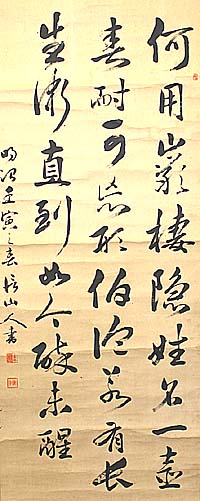 何用巖棲隱姓名一壺
春酎可忘形伯倫若有長
生術直到如今酔未醒
明治壬寅之春山人書